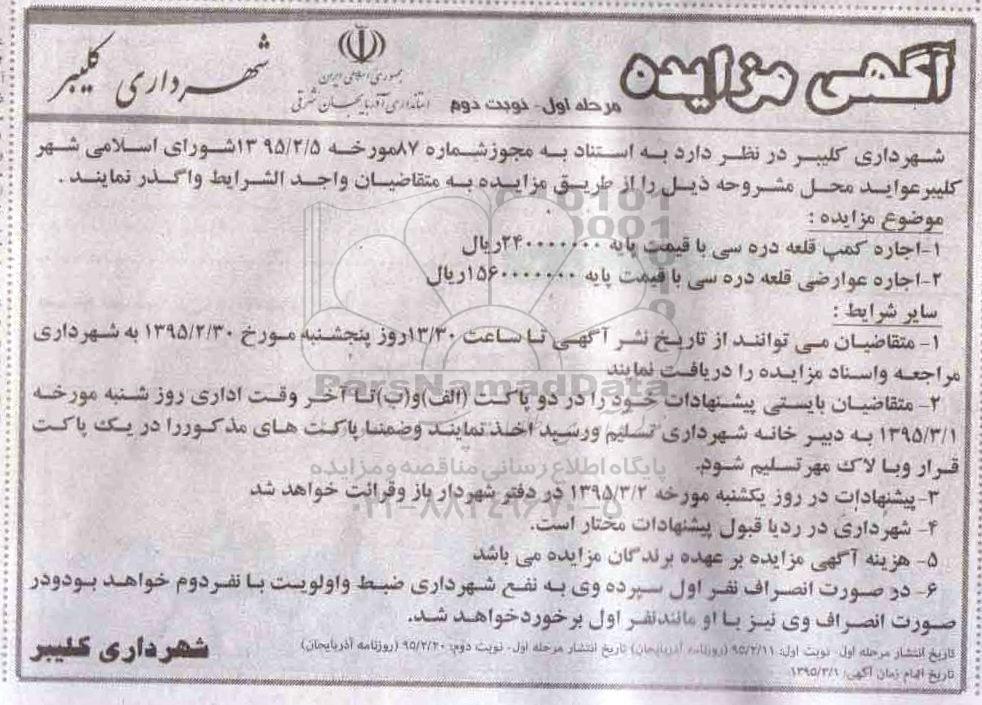 آگهی مزایده
مرحله اول- نوبت دوم
جمهوری اسلامی ایران
استانداری آذربایجان شرقی
شهرداری کلیبر
شهرداری کلیبر در نظر دارد به استناد به مجوزشماره ۸۷مورخه ۱۳۹۵/۲/۵شورای اسلامی شهر
کلیبرعواید محل مشروحه ذیل را از طریق مزایده به متقاضیان واجد الشرایط واگذر نمایند .
موضوع مزایده :
۱-اجاره کمپ قلعه دره سی با قیمت پایه ۲۴۰۰۰۰۰۰۰ریال
۲-اجاره عوارضی قلعه دره سی با قیمت پایه ۱۵۶۰۰۰۰۰۰۰ریال
سایر شرایط :
۱- متقاضیان می توانند از تاریخ نشر آگهی تا ساعت ۱۳/۳۰روز پنجشنبه مورخ ۱۳۹۵/۲/۳۰ به شهرداری
مراجعه واسناد مزایده را دریافت نمایند
۲- متقاضیان بایستی پیشنهادات خود را در دو پاکت (الف)و(ب)تا آخر وقت اداری روز شنبه مورخه
۱۳۹۵/۳/۱ به دبیر خانه شهرداری تسلیم ورسید اخذ نمایند وضمنا پاکت های مذکوررا در یک پاکت
قرار وبا لاک مهر تسلیم شود.
۳-پیشنهادات در روز یکشنبه مورخه ۱۳۹۵/۳/۲ در دفتر شهردار باز وقرائت خواهد شد
۴- شهرداری در ردیا قبول پیشنهادات مختار است.
۵- هزینه آگهی مزایده بر عهده برندگان مزایده می باشد
۶- در صورت انصراف نفر اول سپرده وی به نفع شهرداری ضبط واولویت با نفردوم خواهد بودودر
صورت انصراف وی نیز با او مانندنفر اول برخوردخواهد شد.
تاریخ انتشار مرحله اول- نوبت اول: ۹۵/۲/۱۱ (روزنامه آذربایجان) تاریخ انتشار مرحله اول- نوبت دوم: ۹۵/۲/۲۰ (روزنامه آذربایجان)
تاریخ اتمام زمان آگهی: ۱۳۹۵/۳/۱
شهرداری کلیبر
ParsNamadData
پایگاه اطلاع رسانی مناقصه و مزایده
۰۲۱-۸۸۳۴۹۶۷۰-۵